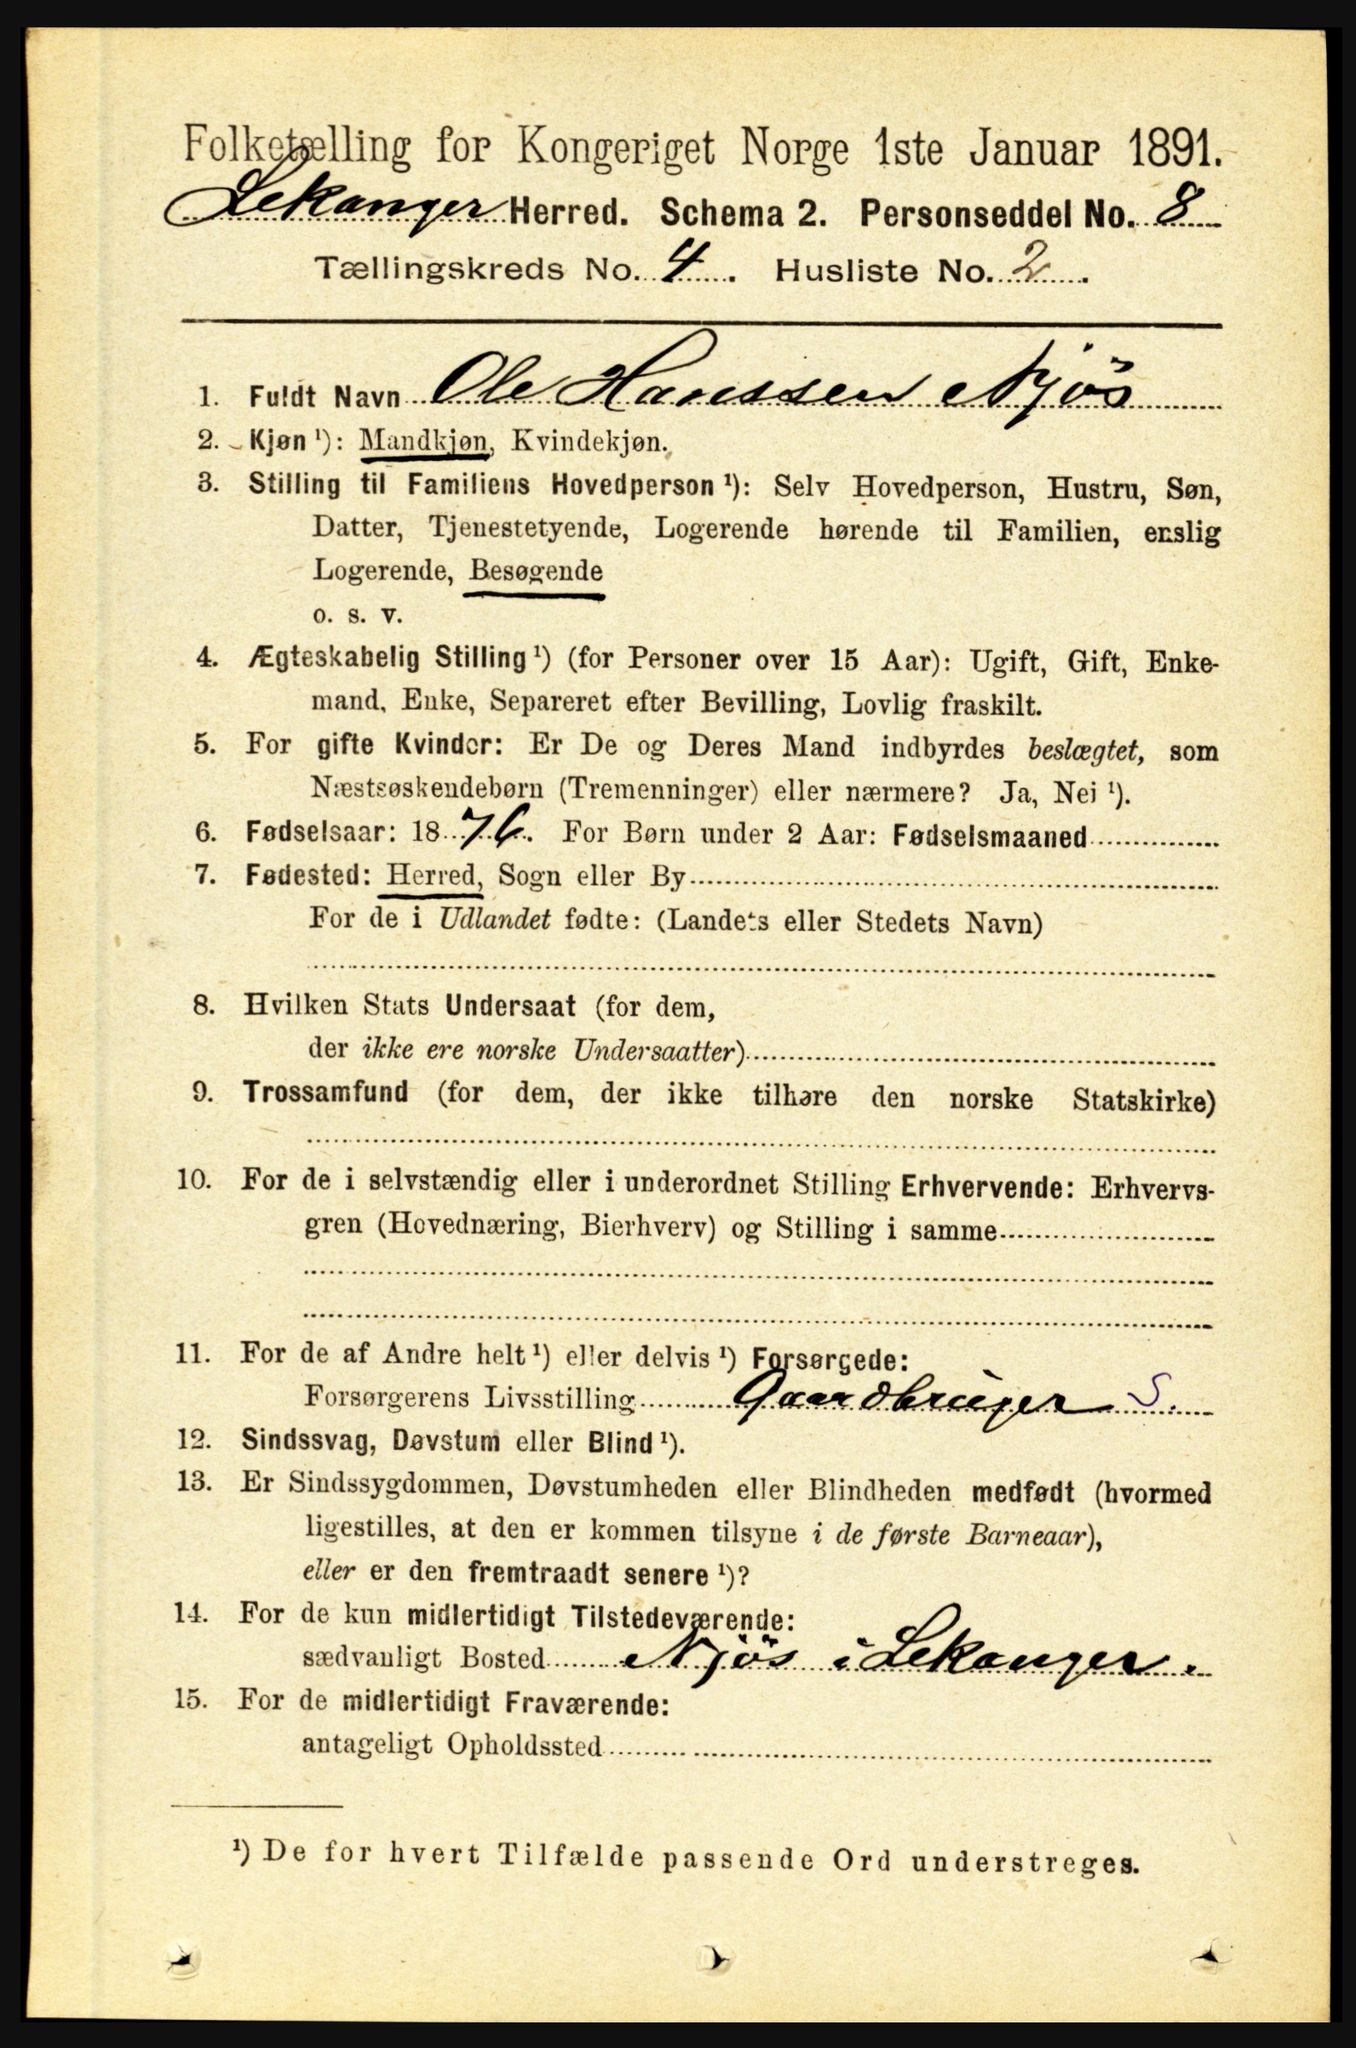 Folketælling for Kongeriget Norge 1ste Januar 1891.
Lekanger Herred. Schema 2. Personseddel No. 8
Tællingskreds No. 4. Husliste No. 2.
1. Fuldt Navn Ole Hanssen Njøs
2. Kjøn ¹): Mandkjøn, Kvindekjøn.
3. Stilling til Familiens Hovedperson ¹): Selv Hovedperson, Hustru, Søn,
Datter, Tjenestetyende, Logerende hørende til Familien, enslig
Logerende, Besøgende
o. s. v.
4. Ægteskabelig Stilling ¹) (for Personer over 15 Aar): Ugift, Gift, Enke-
mand, Enke, Separeret efter Bevilling, Lovlig fraskilt.
5. For gifte Kvinder: Er De og Deres Mand indbyrdes beslægtet, som
Næstsøskendebørn (Tremenninger) eller nærmere? Ja, Nei ¹).
6. Fødselsaar: 1876. For Børn under 2 Aar: Fødselsmaaned
7. Fødested: Herred, Sogn eller By
For de i Udlandet fødte: (Landets eller Stedets Navn)
8. Hvilken Stats Undersaat (for dem,
der ikke ere norske Undersaatter)
9. Trossamfund (for dem, der ikke tilhøre den norske Statskirke)
10. For de i selvstændig eller i underordnet Stilling Erhvervende: Erhvervs-
gren (Hovednæring, Bierhverv) og Stilling i samme
11. For de af Andre helt ¹) eller delvis ¹) Forsørgede:
Forsørgerens Livsstilling Gaardbruger S.
12. Sindssvag, Døvstum eller Blind ¹).
13. Er Sindssygdommen, Døvstumheden eller Blindheden medfødt (hvormed
ligestilles, at den er kommen tilsyne i de første Barneaar),
eller er den fremtraadt senere ¹)?
14. For de kun midlertidigt Tilstedeværende:
sædvanligt Bosted Njøs i Lekanger.
15. For de midlertidigt Fraværende:
antageligt Opholdssted
¹) De for hvert Tilfælde passende Ord understreges.